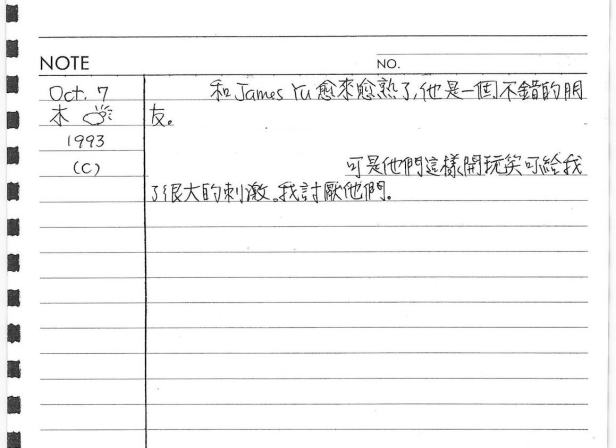 NOTE NO.
Oct. 7 和 James Yu 愈來愈熟了,他是一個不錯的朋
木 友。
1993
(C) 可是他們這樣開玩笑可給我
了很大的刺激。我討厭他們.